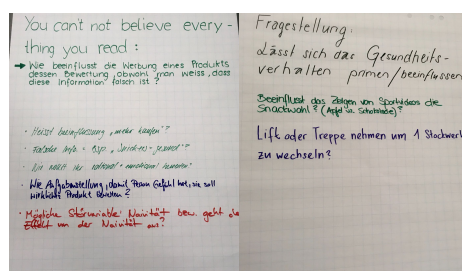 You can't not believe every-
thing you read :
→ Wie beeinflusst die Werbung eines Produkts
dessen Bewertung, obwohl man weiss, dass
diese Information falsch ist ?
· Heisst beeinflussung „mehr kaufen"?
· Falsche Info =
· Wie
· Wie Aufgabenstellung, damit Person Gefühl hat, sie soll
wirklich Produkt bewerten ?
· Mögliche Störvariable: Naivität bzw. geht der
Effekt von der Naivität aus?
Fragestellung:
Lässt sich das Gesundheits-
verhalten primen/beeinflussen
Beeinflusst das Zeigen von Sportvideos die
Snackwahl ? (Apfel vs. Schokolade) ?
Lift oder Treppe nehmen um 1 Stockwerk
zu wechseln?